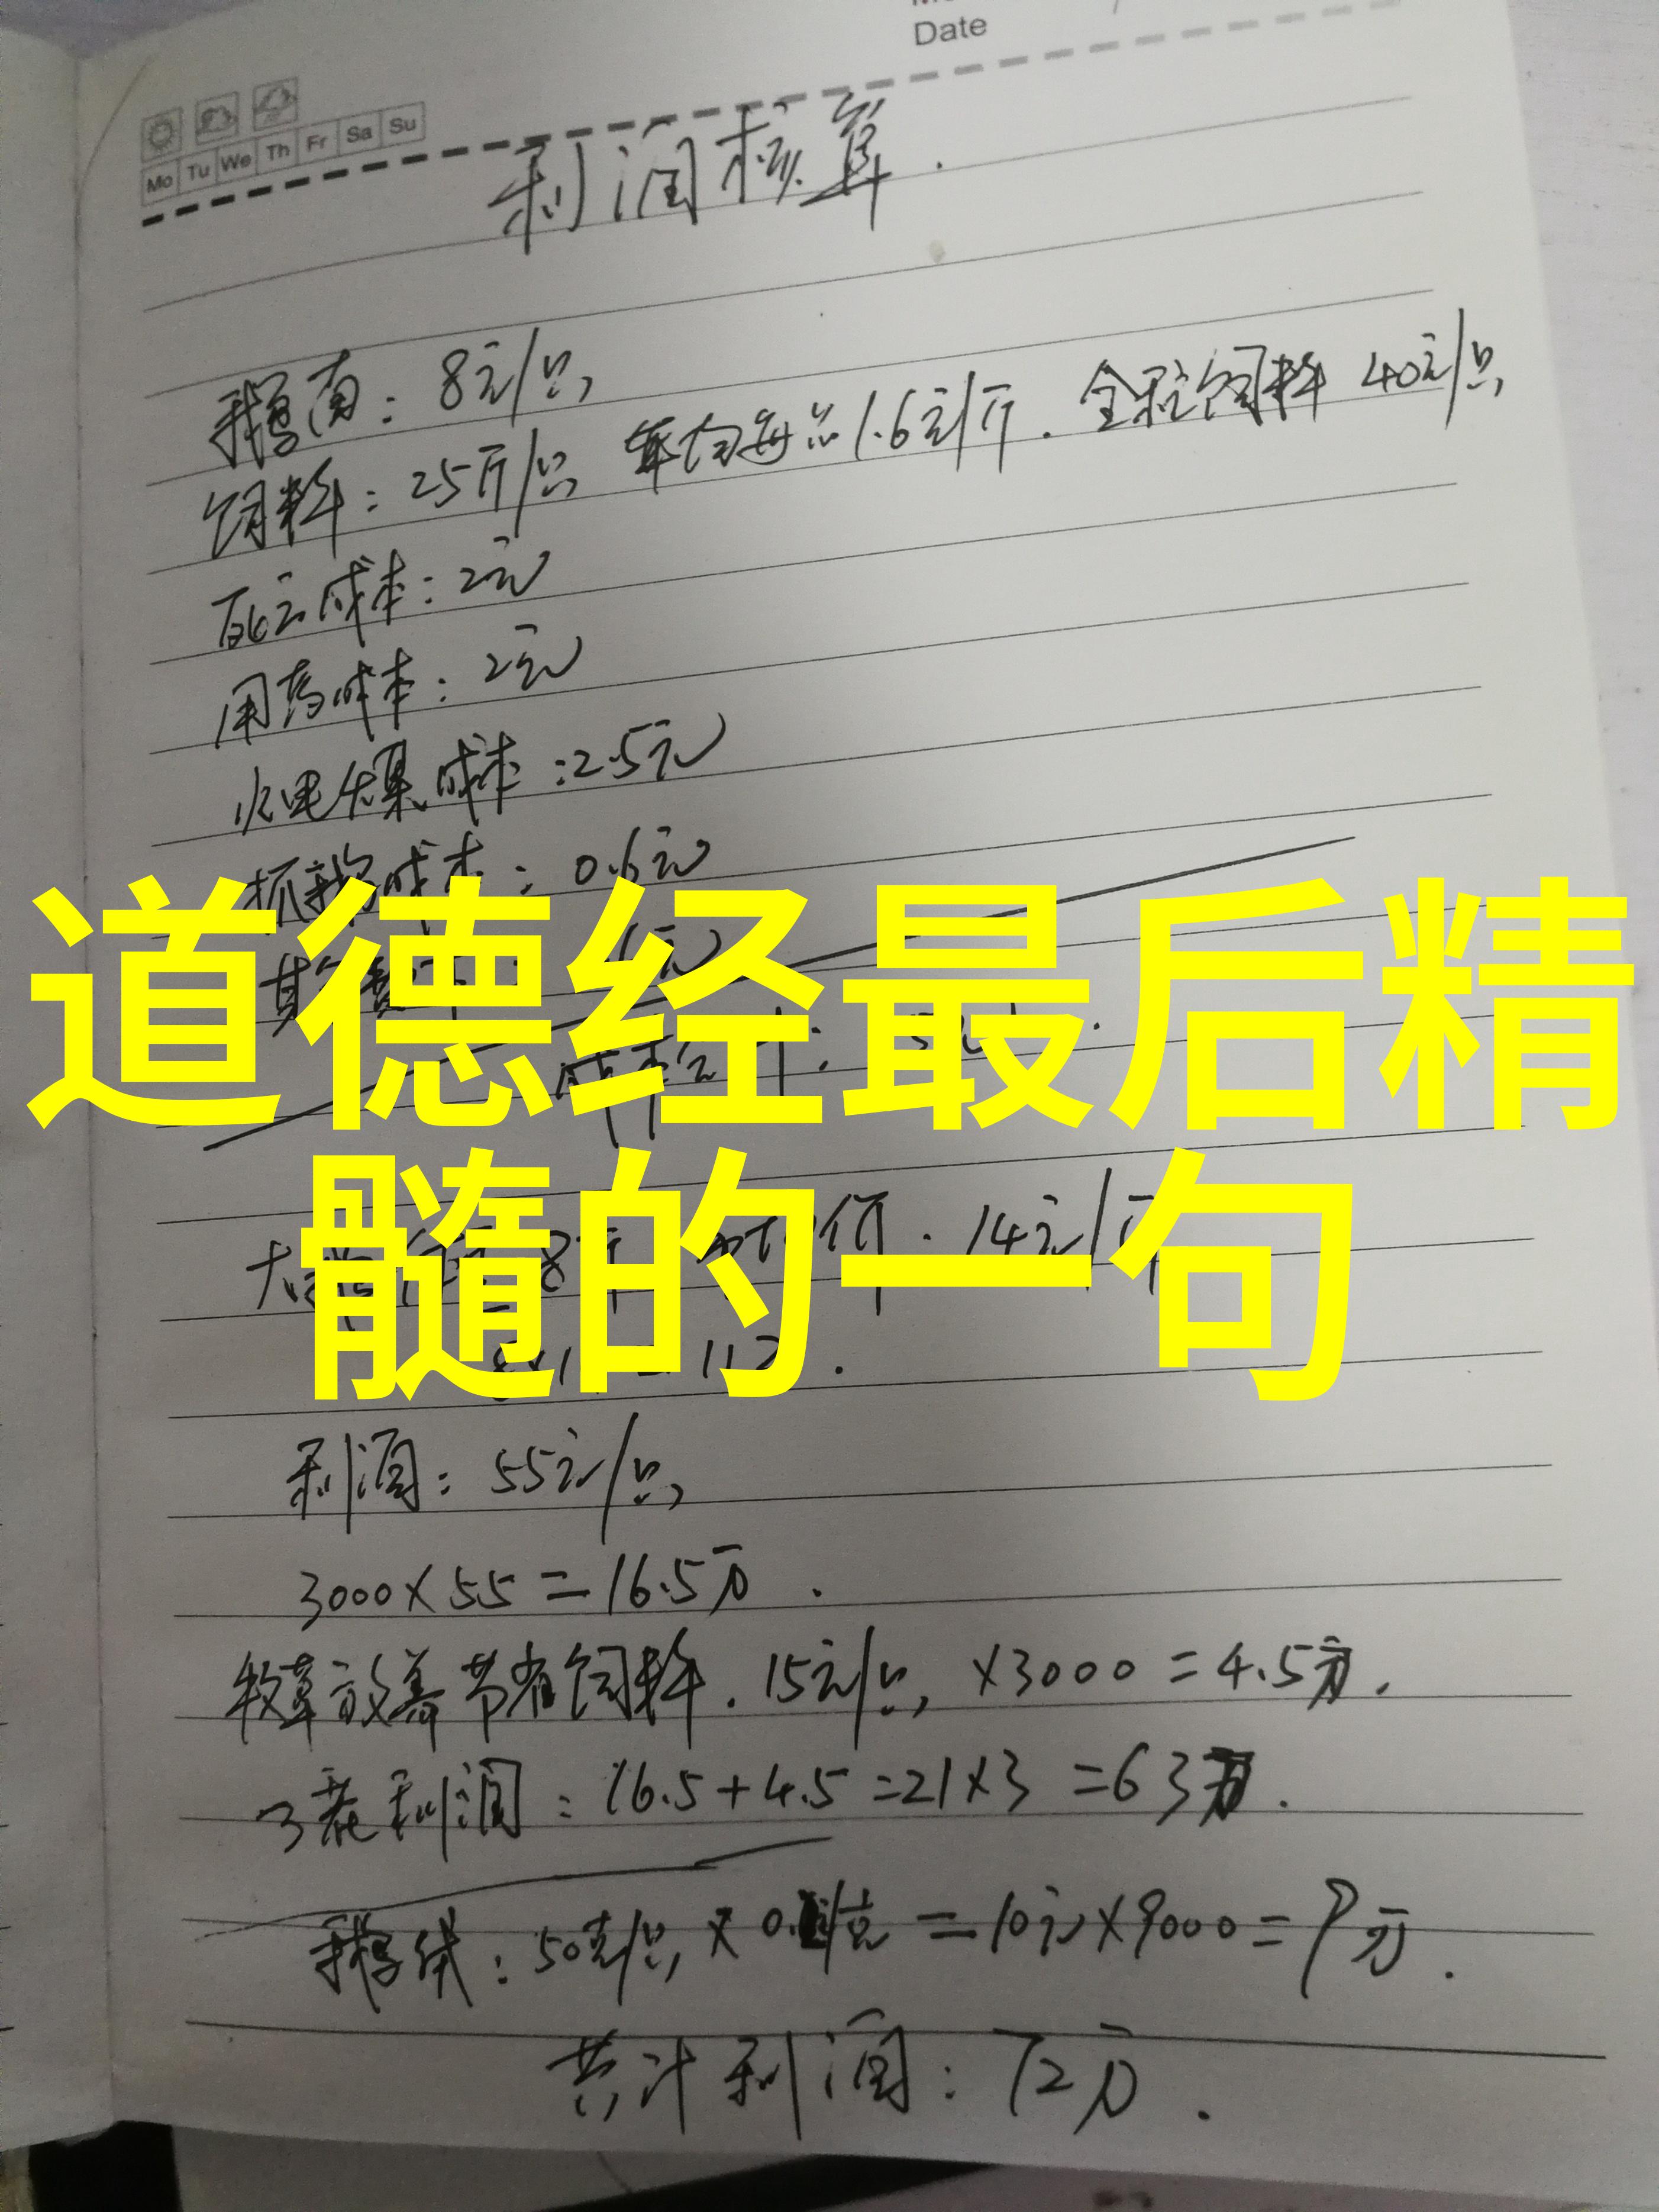 Date
Mo Tu We Th Fr Sa Su
利润核算.
鹅苗：8元/只
饲料：25斤/只 平均每斤1.6元/斤．全程饲料 40元/只
死亡成本：2元
用药成本：2元
水电煤成本：2.5元
抓鹅成本：0.6元
道德经最后精
髓的一句
14元/斤
利润：55元/只
3000×55=16.5万．
牧草放养节省饲料．15元/只，×3000=4.5万．
3茬利润：16.5+4.5=21×3=63万．
鹅绒：50克/只×0.2/克=10元×9000=9万．
共计利润：72万．